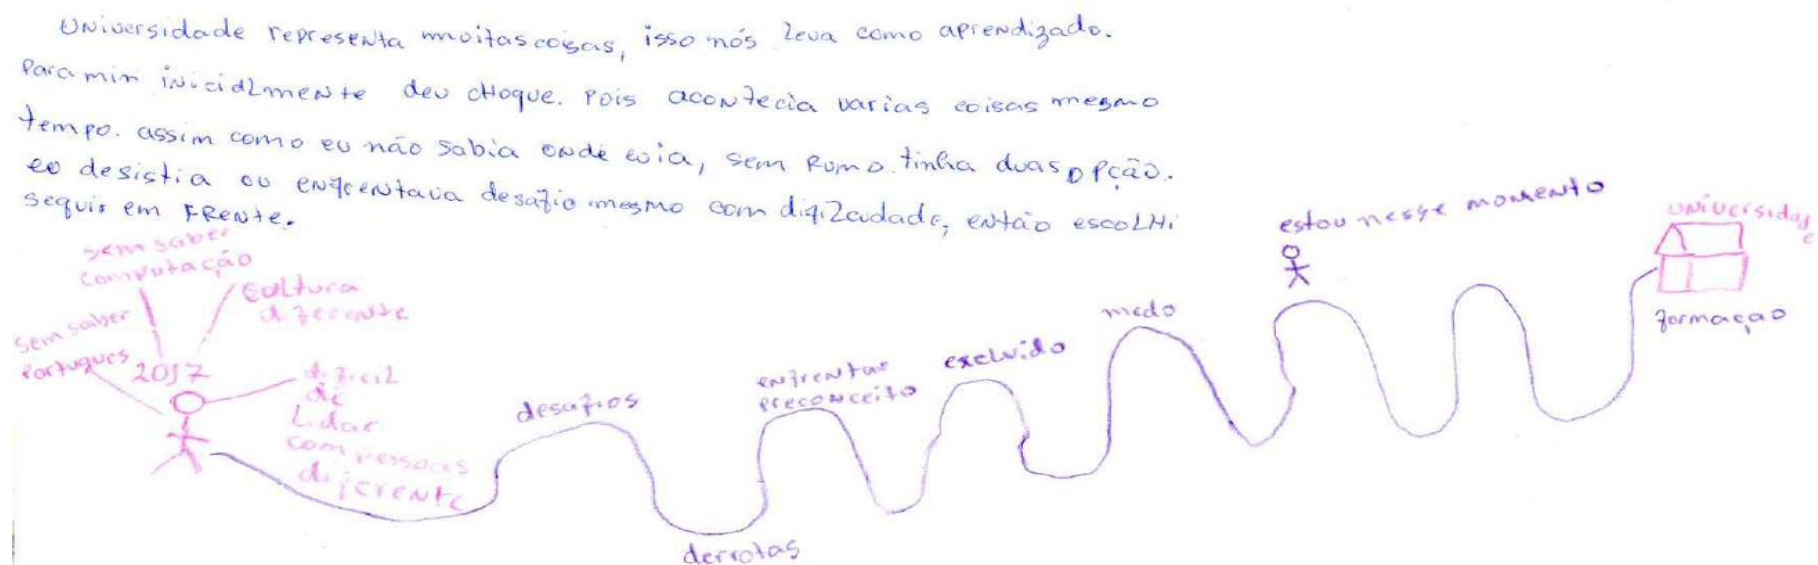 Universidade representa muitas coisas, isso nós leva como aprendizado.
Para mim inicialmente deu choque. Pois acontecia varias coisas mesmo
tempo. assim como eu não sabia onde eu ia, sem Rumo. tinha duas opção.
eo desistia ou enfrentava desafio mesmo com dificudade, então escolhi
seguir em FRente.
sem saber
computação
cultura
diferente
sem saber
Portugues
2017
dificil
de
Lidar
com pessoas
diferente
desafios
derrotas
enfrentar
preconceito
excluido
medo
estou nesse momento
universidade
formação